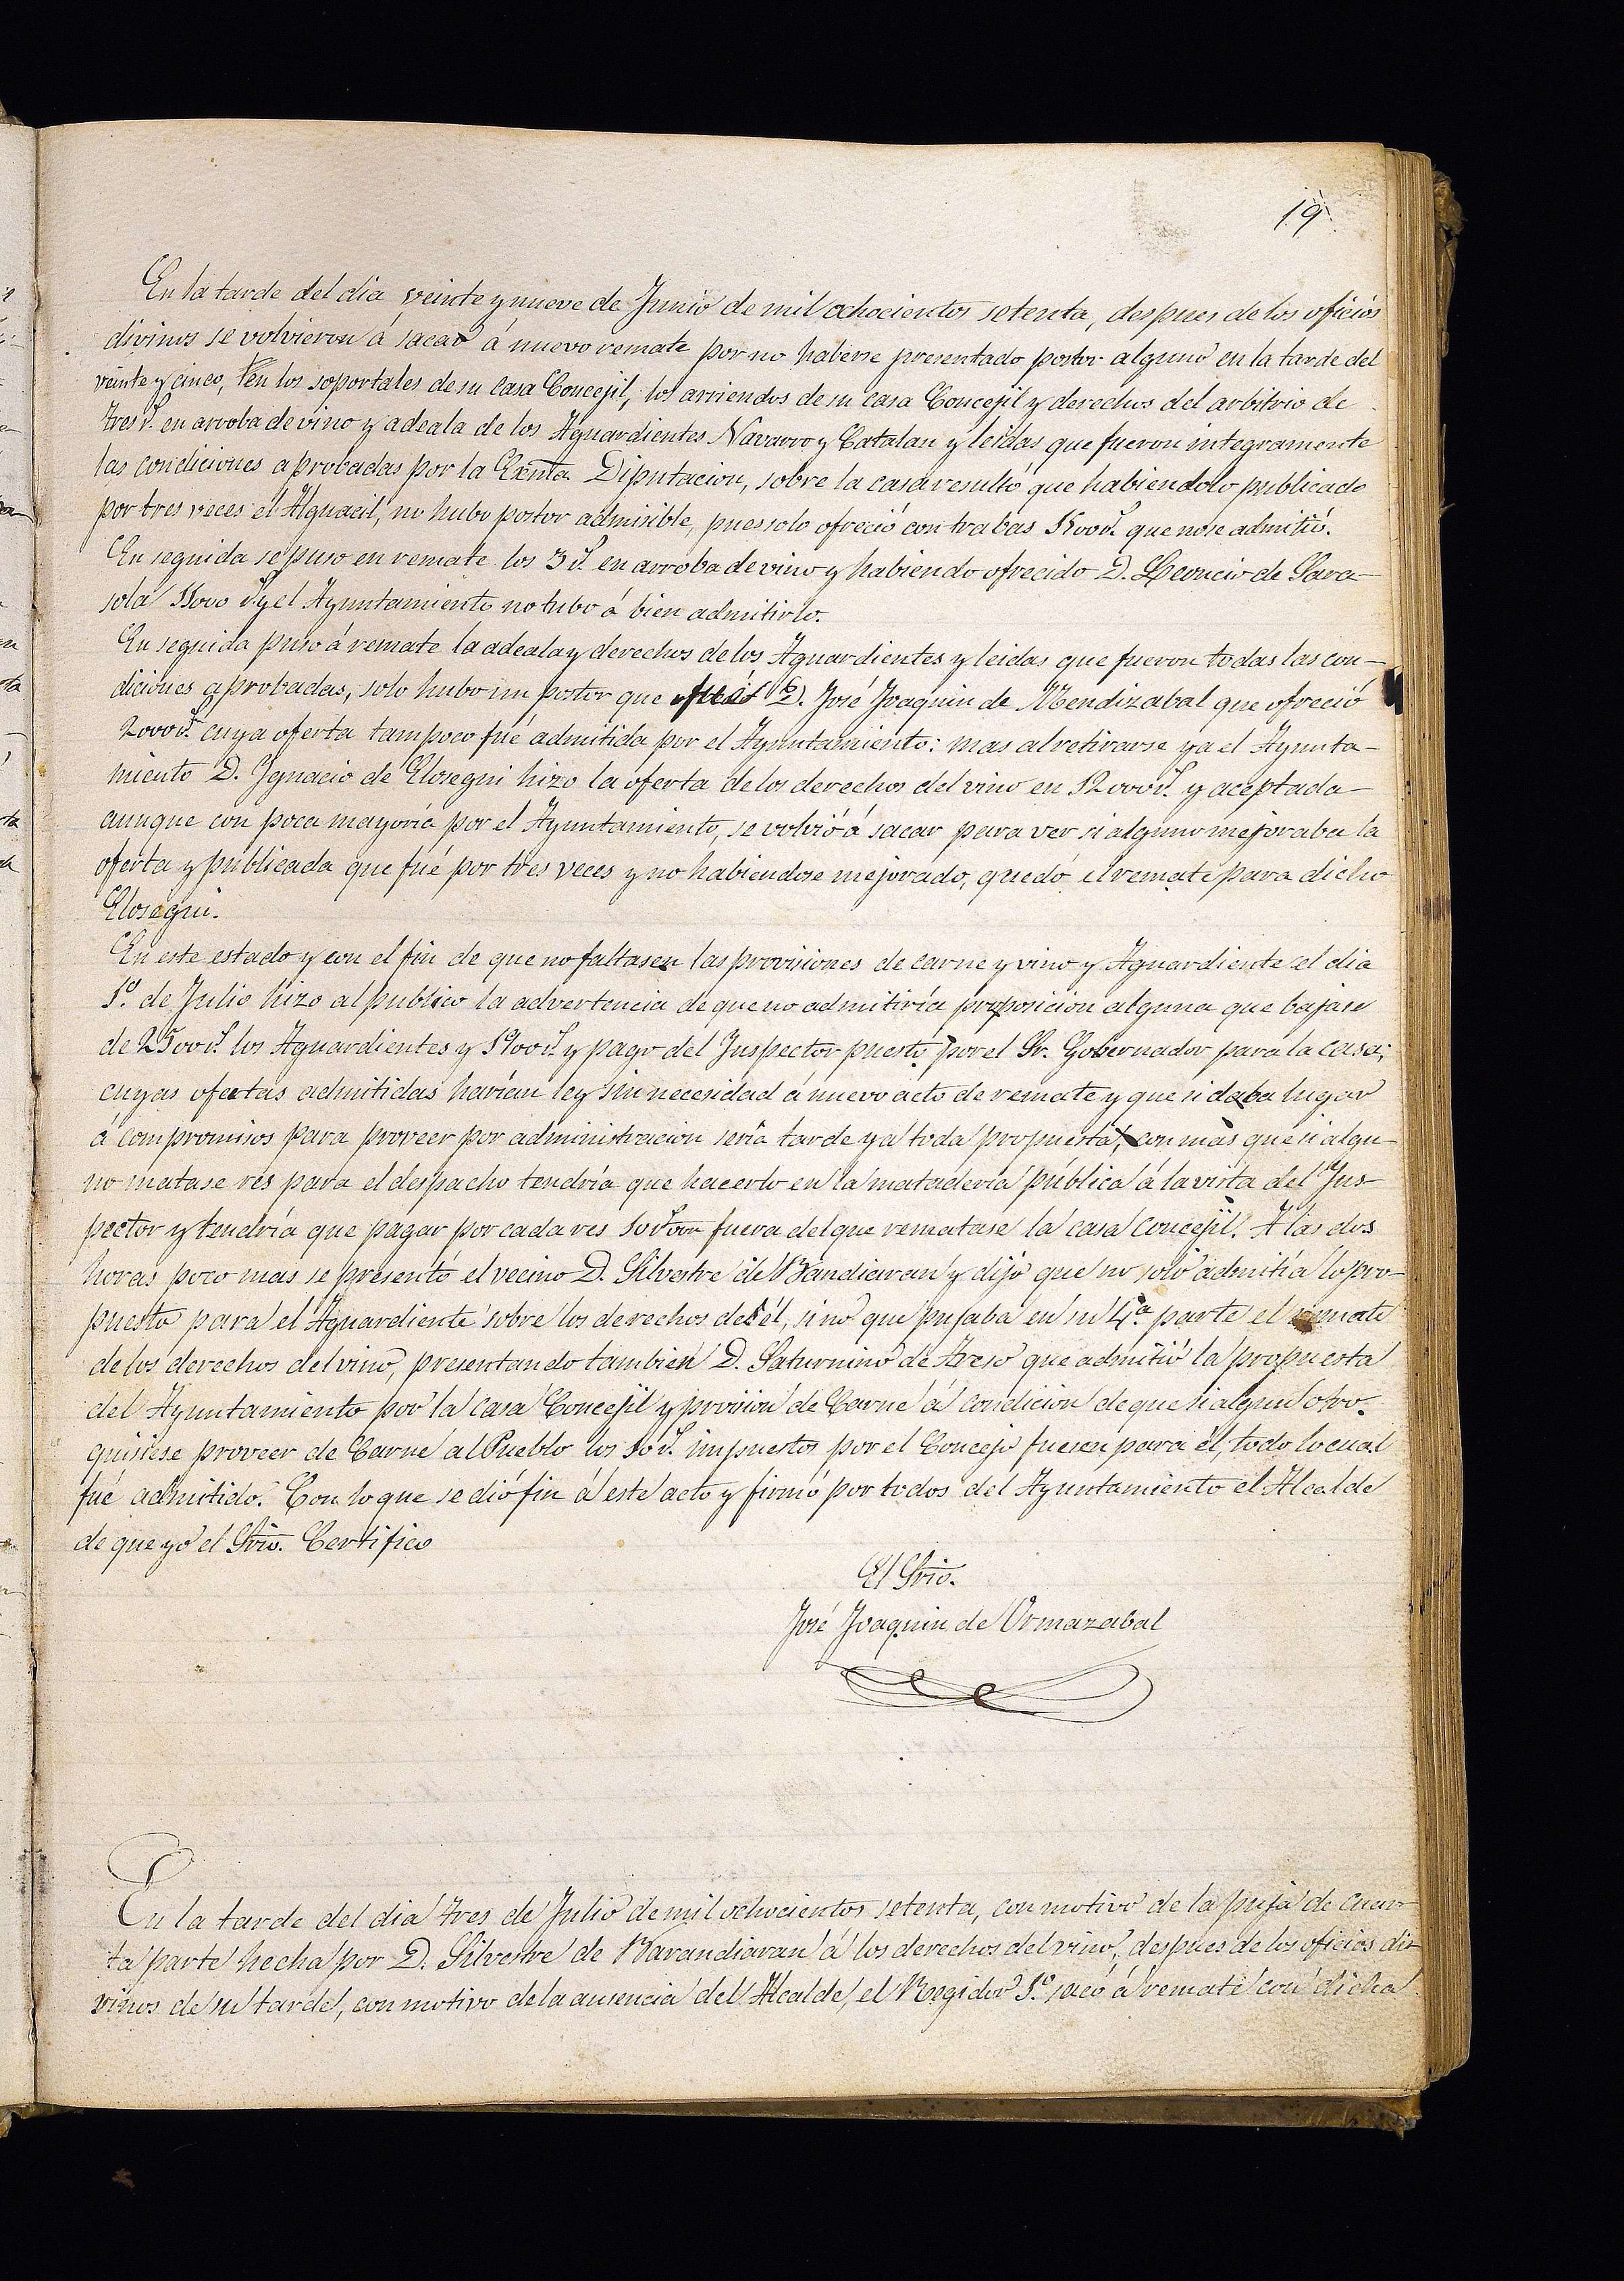 19
En la tarde del dia veinte y nueve de Junio de mil ochocientos setenta, despues de los oficios
divinos se volvieron á sacar á nuevo remate por no haberse presentado postor alguno en la tarde del
veinte y cinco, en los soportales de su casa Concejil, los arriendos de su casa Concejil y derechos del arbitrio de
tres r.s en arroba de vino y adeala de los Aguardientes Navarro y Catalan y leidas que fueron integramente
las condiciones aprobadas por la Exma Diputacion, sobre la casa resultó que habiendolo publicado
por tres veces el Alguacil, no hubo postor admisible, pues solo ofreció con trabas 1500 r.s que no se admitió.
En seguida se puso en remate los 3 r.s en arroba de vino y habiendo ofrecido D. Leoncio de Sara-
sola 11000 r.s y el Ayuntamiento no tubo á bien admitirlo.
En seguida puso á remate la adeala y derechos de los Aguardientes y leidas que fueron todas las con-
diciones aprobadas, solo hubo un postor que D. José Joaquin de Mendizabal que ofreció
2000 r.s cuya oferta tampoco fué admitida por el Ayuntamiento: mas al retirarse ya el Ayunta-
miento D. Ygnacio de Elosegui hizo la oferta de los derechos del vino en 12000 r.s y aceptada
aunque con poca mayoría por el Ayuntamiento, se volvió á sacar para ver si alguno mejoraba la
oferta y publicada que fué por tres veces y no habiendose mejorado, quedó el remate para dicho
Elosegui.
En este estado y con el fin de que no faltasen las provisiones de carne y vino y Aguardiente el dia
1º. de Julio hizo al publico la advertencia de que no admitiría proposicion alguna que bajase
de 2500 r.s los Aguardientes y 1900 r.s y pago del Inspector puesto por el Sr. Gobernador para la casa;
cuyas ofertas admitidas harían ley sin necesidad á nuevo acto de remate y que si daba lugar
á compromisos para proveer por administracion sería tarde ya toda propuesta, con mas que si algu-
no matase res para el despacho tendría que hacerlo en la matadería pública á la vista del Ins-
pector y tendría que pagar por cada res 10 r.s fuera del que rematase la casa Concejil. A las dos
horas poco mas se presentó el vecino D. Silvestre de Bandiaran y dijo que no solo admitía lo pro-
puesto para el Aguardiente sobre los derechos de él, sino que pujaba en su 4ª. parte el remate
de los derechos del vino, presentando tambien D. Saturnino de Areso que admitió la propuesta
del Ayuntamiento por la casa Concejil y provision de Carne á condicion de que si algun otro
quisiese proveer de Carne al Pueblo los 10 r.s impuestos por el Concejo fuesen para él, todo lo cual
fué admitido. Con lo que se dió fin á este acto y firmó por todos del Ayuntamiento el Alcalde
de que yo el Srio. Certifico
El Srio.
José Joaquin de Ormazabal
En la tarde del dia tres de Julio de mil ochocientos setenta, con motivo de la puja de cuar-
ta parte hecha por D. Silvestre de Barandiaran á los derechos del vino, despues de los oficios di-
vinos de su tarde, con motivo de la ausencia del Alcalde, el Regidor 1º. sacó á remate con dicha